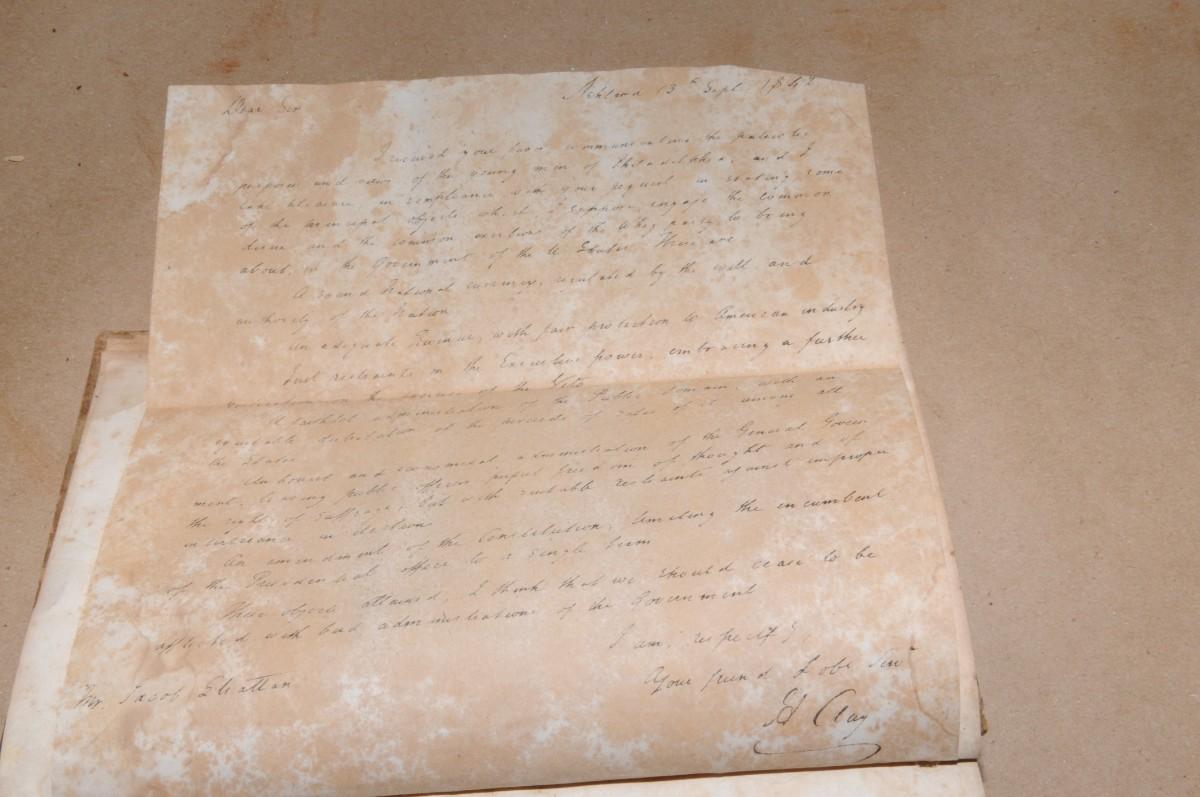 Ashland 13th Sept. 1842
Dear Sir
I received your favor, communicating the patriotic
purposes and views of the young men of Philadelphia, and I
take pleasure, in compliance with your request, in stating some
of the principal objects which, I suppose, engage the common
desire and the common exertions of the Whig party to bring
about, in the Government of the U. States. These are
A sound National currency, regulated by the will and
authority of the Nation
An adequate Revenue, with fair protection to American industry
Just restraints on the Executive power, embracing a further
restriction on the exercise of the Veto
A faithful administration of the Public domain, with an
equitable distribution of the proceeds of sales of it among all
the States
An honest and economical administration of the General Govern
ment, leaving public officers perfect freedom of thought and of
the right of suffrage; but with suitable restraints against improper
interference in elections
An amendment of the Constitution, limiting the incumbent
of the Presidential office to a single term
These objects attained, I think that we should cease to be
afflicted with bad administration of the Government
I am, respectfy,
Your friend & obt Servt
H Clay
Mr. Jacob Strattan